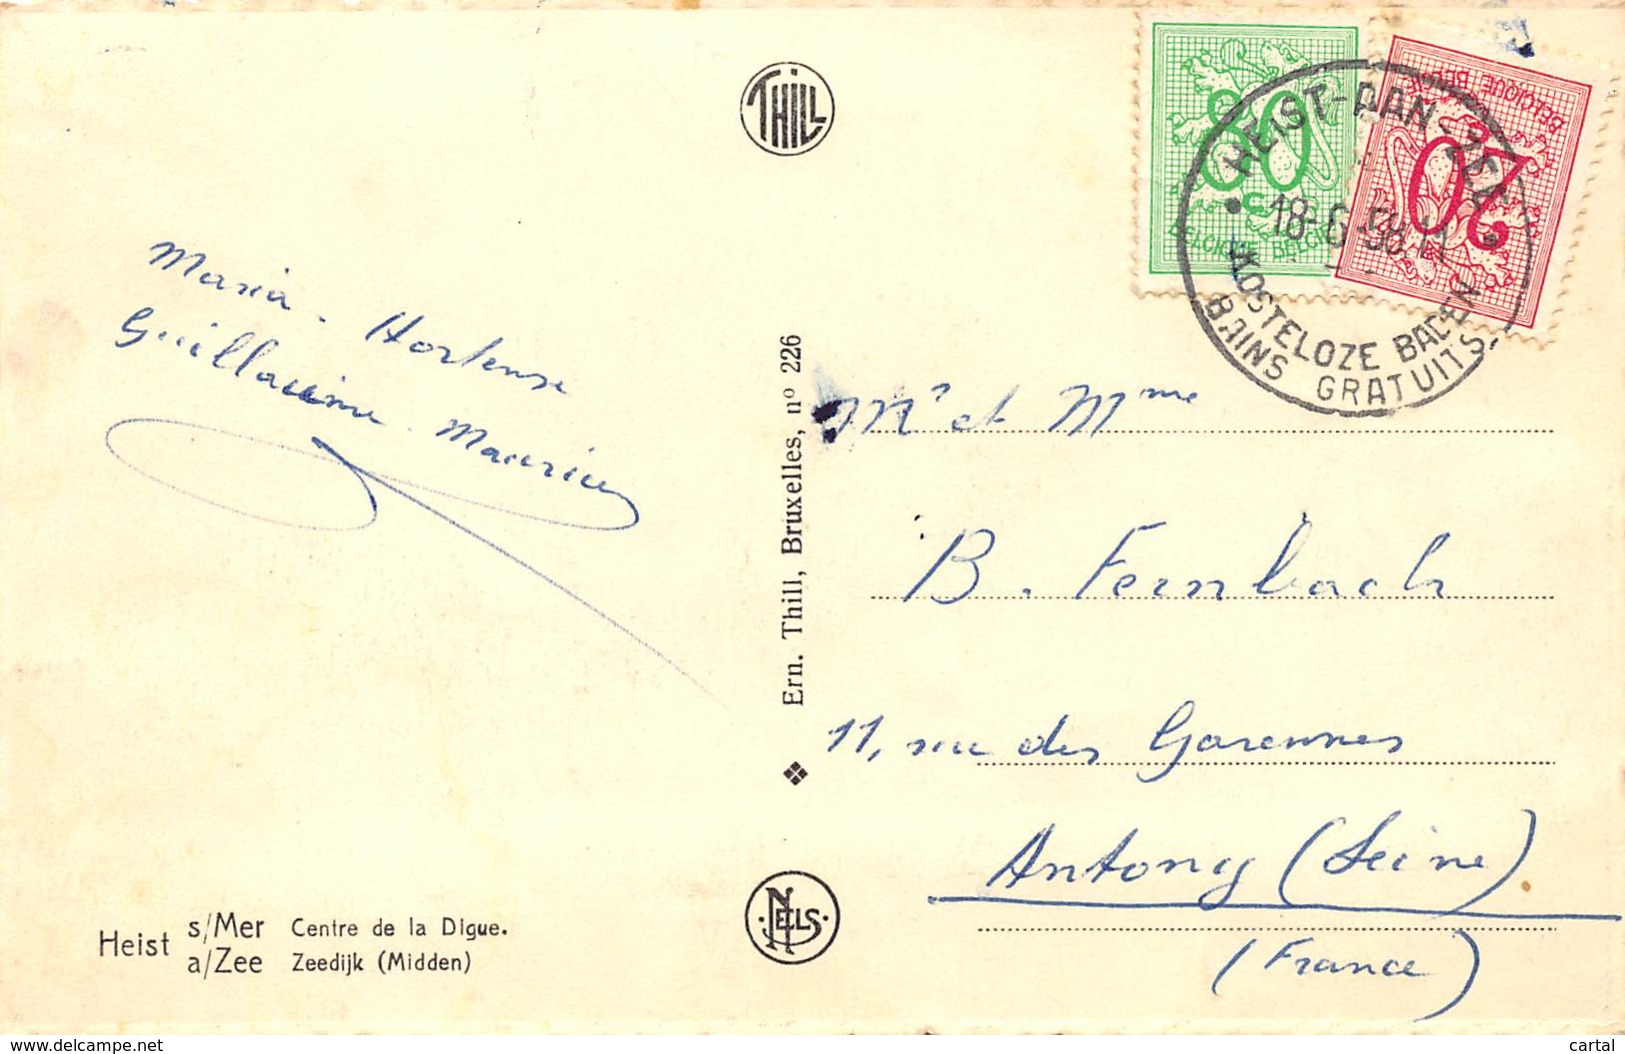 THILL
80
c
BELGIQUE BELGIE
BELGIQUE BELGIE
20
HEIST-AAN-ZEE
18-6-58.11
KOSTELOZE BADEN
BAINS GRATUITS
Maria - Hortense
Guillaume - Maurice
Ern. Thill, Bruxelles, nº 226
Mr et Mme
B. Fernbach
11, rue des Garennes
Antony (Seine)
(France)
Heist s/Mer Centre de la Digue.
a/Zee Zeedijk (Midden)
NELS
www.delcampe.net
cartal